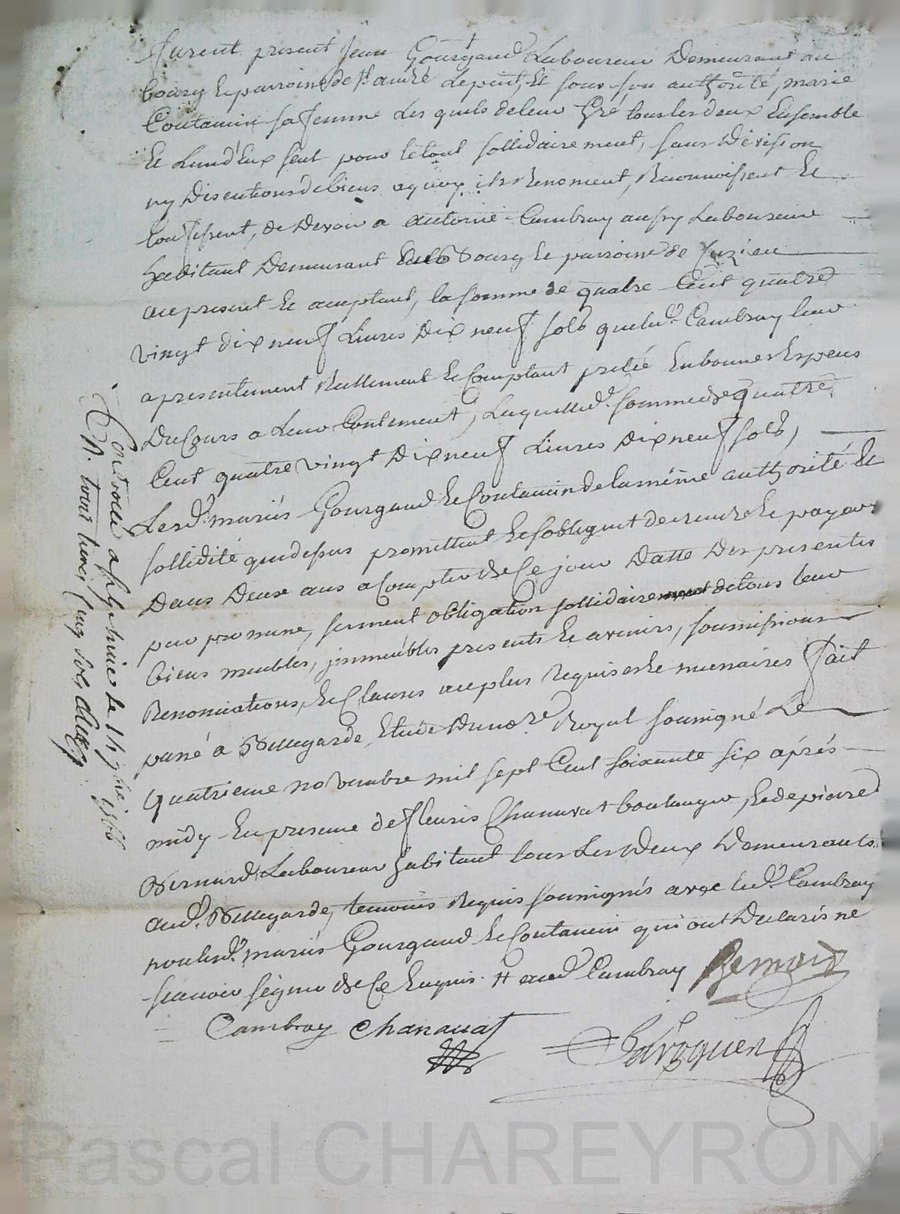 furent present Jean Gourgaud Laboureur Demeurant au
bourg & parroisse de St andré Le puit, & sous son authorité, marie
Coutancin sa femme Les quels de leur Gré tous les deux Ensemble
& L'un d'Eux seul pour le tout sollidairement, sans Division
ny Discutions de biens a quoy ils Renoncent, Reconnoissent &
Confessent, de Devoir a Antoine Cambray aussy Laboureur
habitant Demeurant bourg & parroisse de Cuzieu
au present & aceptant, la somme de quatre Cent quatre
vingt dix neuf Livres Dix neuf sols que led. Cambray leur
a presentement Reellement & Comptant pretée En bonnes Especes
Du Cours a Leur Contentement, Laquelle d. somme de quatre
Cent quatre vingt Dix neuf Livres Dix neuf sols,
Lesd. mariés Gourgaud & Coutancin de la même authorité &
sollidité que dessus promettent & s'obligent de rendre & payer
Dans Deux ans a Compter de Ce jour Datte Des presentes
par promesse, serment obligation sollidaire de tous leurs
biens meubles, immeubles presents & avenirs, soumissions
Renonciations, & Clauses au plus Requises & necessaires fait
passé a Bellegarde, Etude Du nore Royal soussigné Le
quatrieme novembre mil sept Cent soixante six aprés
midy En presence de fleuris Chanavat boulanger, & de pierre
Bernard Laboureur habitant tous Les Deux Demeurants
aud. Bellegarde, temoins Requis soussignés avec led. Cambray
non lesd. mariés Gourgaud & Coutancin qui ont Declarés ne
scavoir signer de Ce Enquis # aud. Cambray
Cambray Chanavat
Controlé a St Galmier le 9bre 1766
R. trois livres Cinq sols
Pascal CHAREYRON